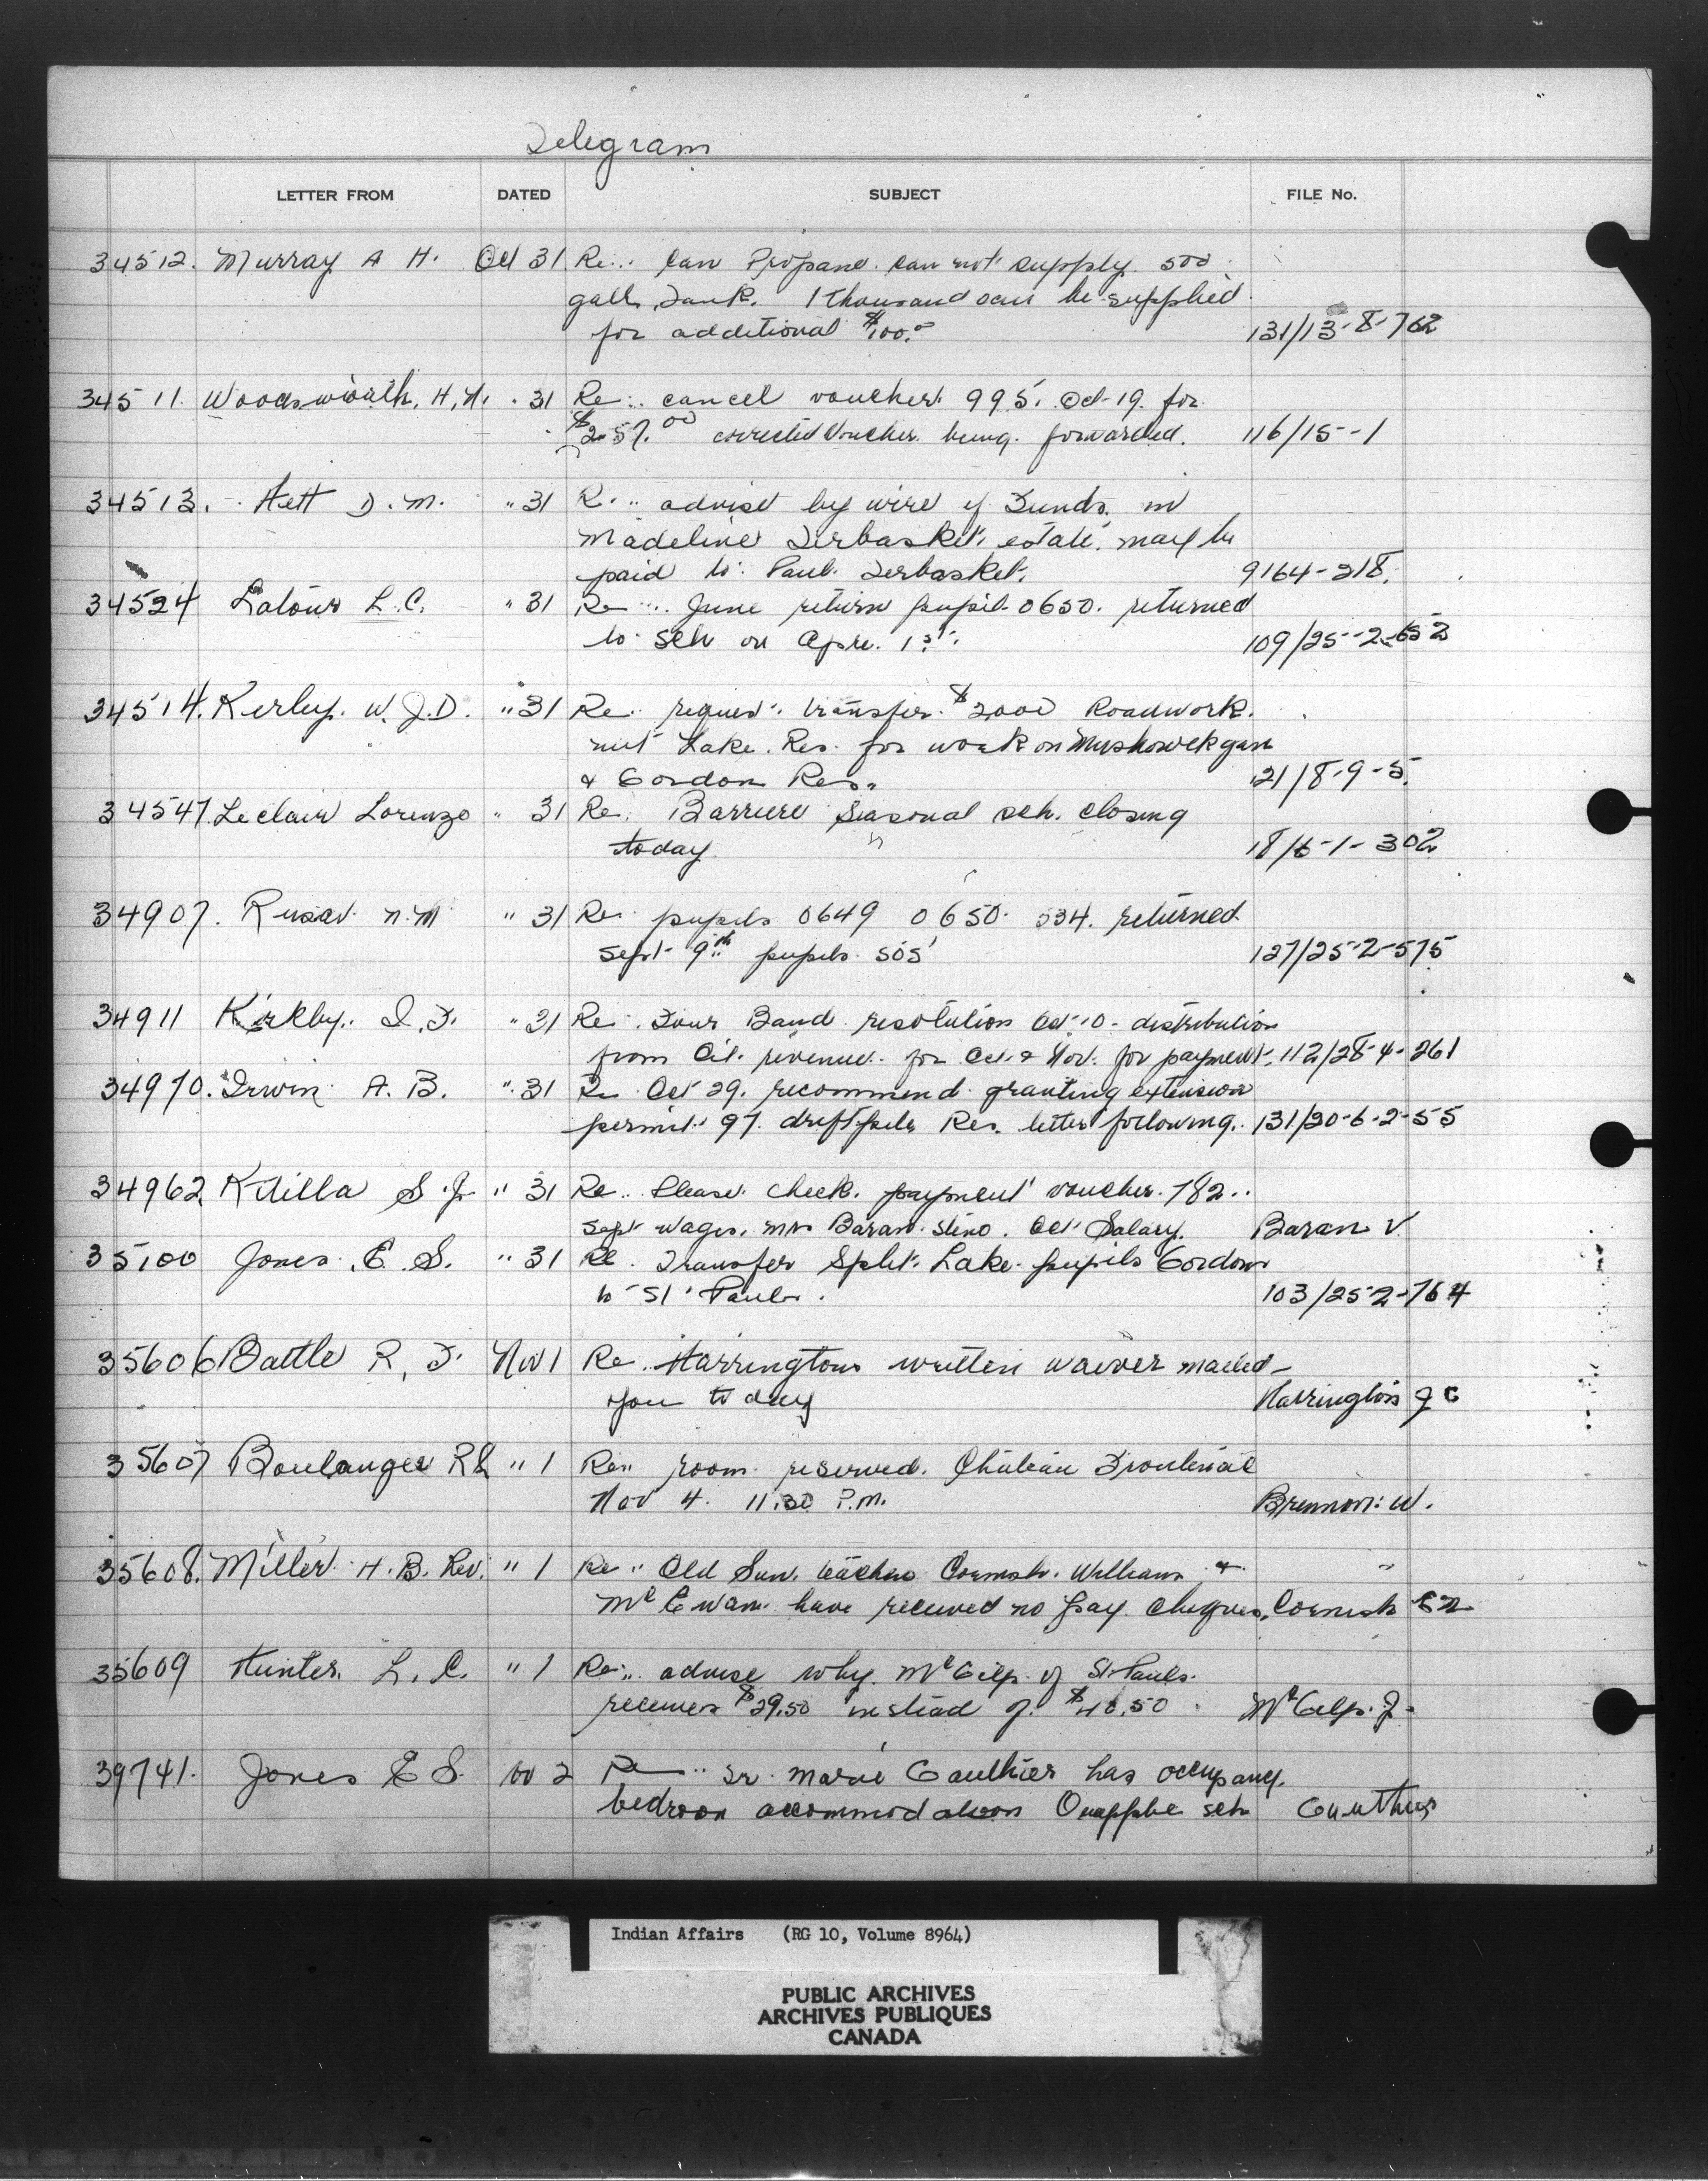 Telegram
LETTER FROM DATED SUBJECT FILE No.
34512. Murray A H. Oct 31 Re.. Can Propane. can not supply 500
gall Tank. 1 thousand can be supplied
for additional $100.00 131/13-8-762
34511. Woodsworth, H.N. " 31 Re.. cancel voucher 995. Oct-19. for
$257.00 corrected voucher being forwarded. 116/15-1
34513. Hett D.M. " 31 Re.. advise by wire if Funds in
Madeline Terbasket, estate, may be
paid to Paul Terbasket. 9164-218.
34524 Latour L.C. " 31 Re.. June return pupil 0650. returned
to sch on Apr. 1st. 109/25-2-652
34514. Kerley W.J.D. " 31 Re.. request transfer $2000 Roadwork.
nut Lake Res. for work on Muskowekgan
& Gordon Res. 121/8-9-5.
34547. Leclair Lorenzo " 31 Re. Barriere Seasonal sch. closing
today 18/6-1-302
34907. Rusav N.M " 31 Re. pupils 0649 0650 534. returned
Sept 9th pupils 505 127/25-2-575
34911 Kirkby. I.F. " 31 Re. Four Band resolution Oct 10- distribution
from Oil revenue for Oct & Nov. for payment. 112/28-4-261
34970. Irwin A.B. " 31 Re Oct 29. recommend granting extension
permit 97. driftpile Res. letter following. 131/20-6-2-55
34962 Kdilla S.J. " 31 Re.. Please check payment voucher 782..
Sept wages, mrs Baran steno. Oct Salary. Baran V.
35100 Jones. E.S. " 31 Re. Transfer Split Lake pupils Gordon
to St Pauls. 103/25-2-764
35606 Battle R.F. Nov 1 Re.. Harringtons written waiver mailed
you today Harrington J C
35607 Boulanger R L " 1 Re.. room reserved. Chateau Frontenac
Nov 4. 11.30 P.M. Brennan W.
35608. Miller H.B. Rev. " 1 Re.. Old Sun. teachers Cornish. Williams &
McEwan have received no pay cheques. Cornish E
35609 Hunter. L.C. " 1 Re.. advise why McGilp of St Pauls
receives $29.50 instead of $40.50 McGilp. J.
39741. Jones E S. 2 Re.. Sr. Marie Gauthier has occupancy
bedroom accommodation Quappelle sch Gauthier
Indian Affairs (RG 10, Volume 8964)
PUBLIC ARCHIVES
ARCHIVES PUBLIQUES
CANADA